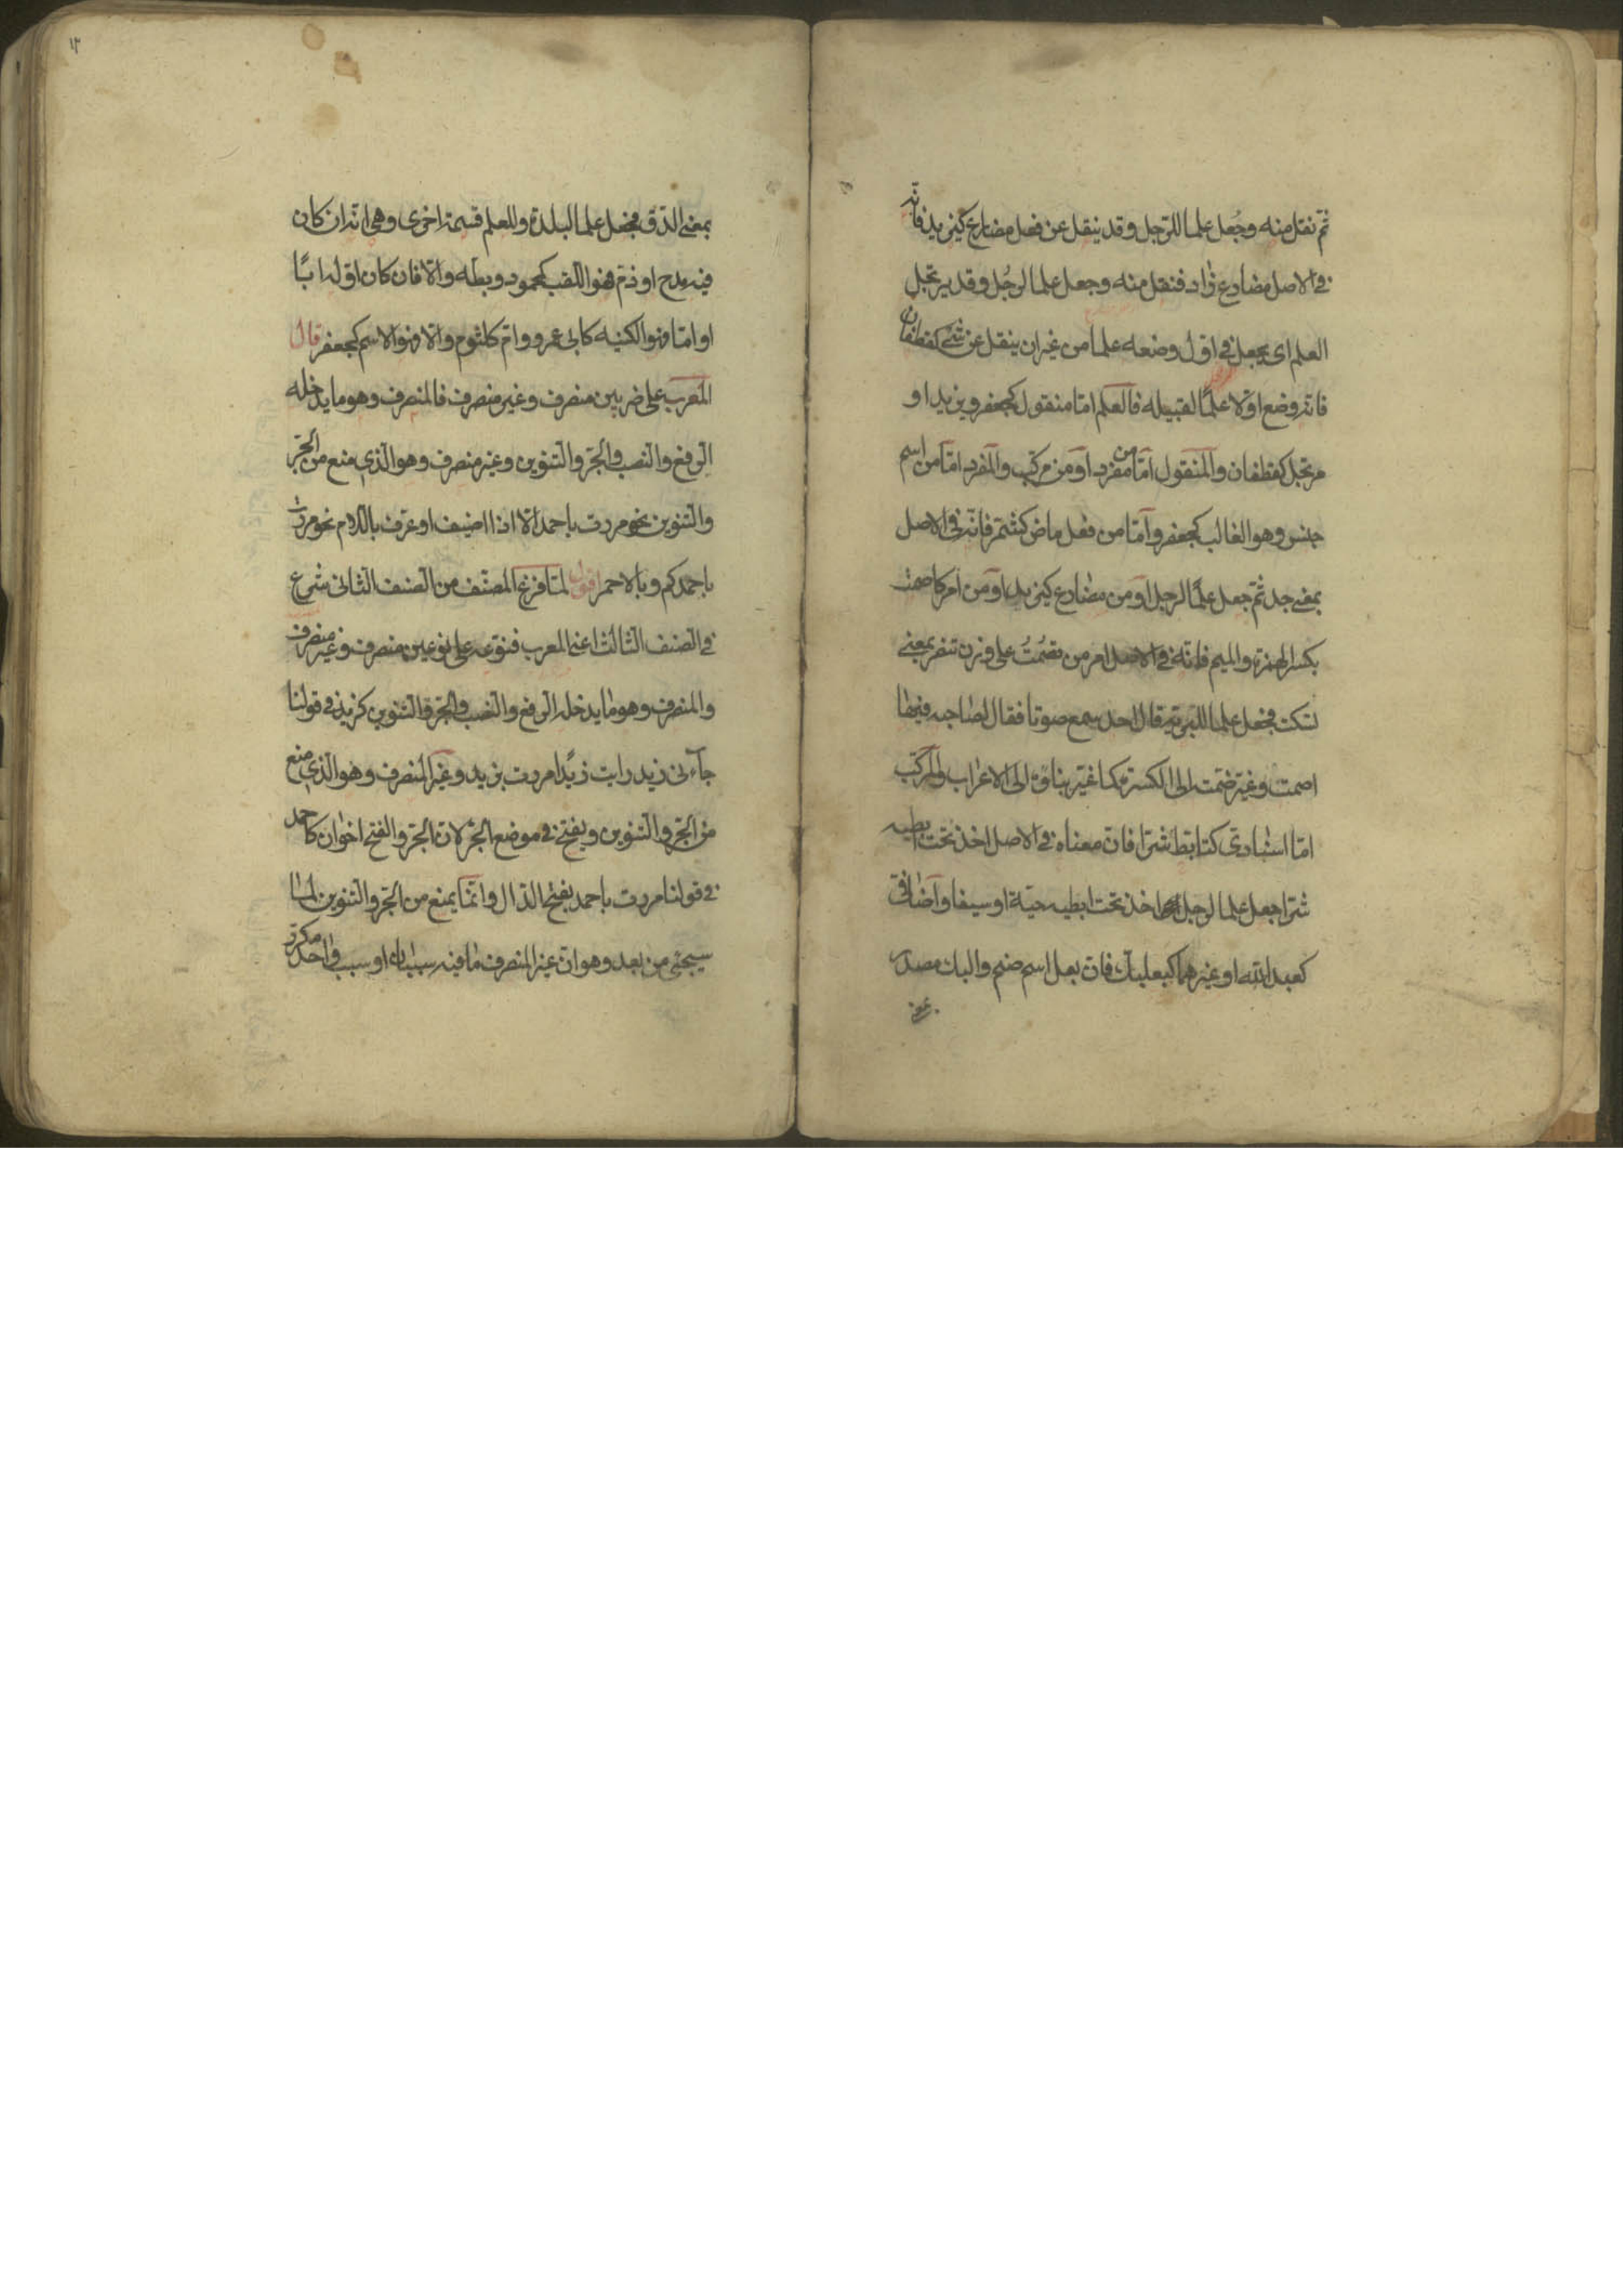 ثم نقل منه وجُعل علما للرجل وقد ينقل عن فعل مضارع كيزيد فانه
فى الاصل مضارع زاد فنقل منه وجعل علما لرجُل وقد يرتجل
العلم اى يجعل فى اول وضعه علما من غير ان ينقل عن شئ كغطفان
فانه وضع اولا علمًا لقبيله فالعلم اما منقول كجعفر ويزيد او
مرتجل كغطفان والمنقول امّا من مفرد او من مركب والمفرد امّا من اسم
جنس وهو الغالب كجعفر وامّا من فعل ماض كشمّر فانّه فى الاصل
بمعنى جد ثمّ جعل علمًا لرجل او من مضارع كيزيد او من امر كاصمت
بكسر الهمزة والميم فانّه فى الاصل امر من تصمُتُ على وزن تنصر بمعنى
تسكت فجعل علما للبريّة قال احد سمع صوتا فقال لصاحبه فيها
اصمت وغيّر ضمّت الى الكسرة كما غيّر بناؤه الى الاعراب والمركّب
امّا اسنادى كتابّط شرّا فانّ معناه فى الاصل اخذ تحت ابطيه
شرّا جعل علما لرجل اخذ تحت ابطيه حيّة او سيفا واضافىّ
كعبد الله او غيرهما كبعلبكّ فانّ بعل اسم صنم والبك مصدر
بمعنى
١٣
بمعنى الدّق فجعل علما لبلدة وللعلم قسمة اخرى وهى انّه ان كان
فيه مدح او ذمّ فهو اللقب كمحمود وبطّه والّا فان كان اوّله ابًا
او امّا فهو الكنيه كابى عمرو وامّ كلثوم والّا فهو الاسم كجعفر قال
المعرب على ضربين منصرف وغير منصرف فالمنصرف وهو ما يدخله
الرّفع والنصب والجرّ والتنوين وغير منصرف وهو الّذى منع من الجرّ
والتنوين نحو مررت باحمد الّا اذا اضيف او عرّف باللام نحو مررت
باحمدكم وبالاحمر اقول لمّا فرغ المصنّف من الصنف الثانى شرع
فى الصنف الثالث اعنى المعرب فنوّعه على نوعين منصرف وغير منصرف
والمنصرف وهو ما يدخله الرفع والنصب والجرّ والتنوين كزيد فى قولنا
جآءنى زيد رايت زيدًا مررت بزيد وغير المنصرف وهو الذى منع
من الجرّ والتنوين ويفتح فى موضع الجرّ لانّ الجرّ والفتح اخوان كاحمد
فى قولنا مررت باحمد بفتح الدّال وانّما يمنع من الجرّ والتنوين لما
سيجئ من بعد وهو انّ غير المنصرف ما فيه سببان او سبب واحد مكرّر